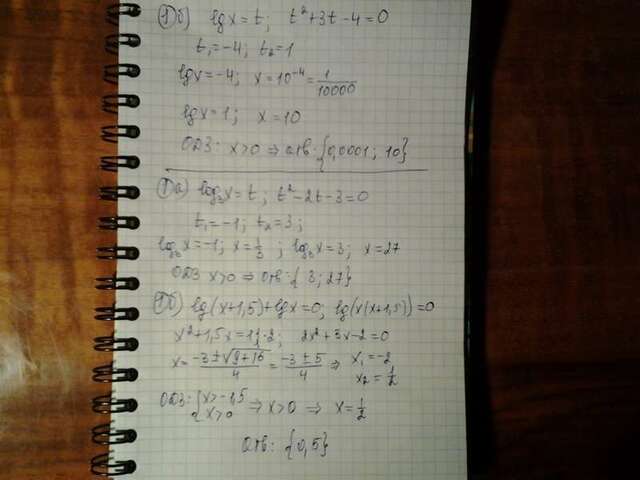 ① б) lg x = t; t² + 3t - 4 = 0
t₁ = -4; t₂ = 1
lg x = -4; x = 10⁻⁴ = 1/10000
lg x = 1; x = 10
ОДЗ: x > 0 ⇒ отв: {0,0001; 10}
① а) log₃x = t; t² - 2t - 3 = 0
t₁ = -1; t₂ = 3;
log₃x = -1; x = 1/3; log₃x = 3; x = 27
ОДЗ x > 0 ⇒ отв: {3; 27}
б) lg(x+1,5) + lg x = 0; lg(x(x+1,5)) = 0
x² + 1,5x = 1 |·2; 2x² + 3x - 2 = 0
x = (-3 ± √(9+16))/4 = (-3 ± 5)/4 ⇒ x₁ = -2
x₂ = 1/2
ОДЗ: {x > -1,5
x > 0 ⇒ x > 0 ⇒ x = 1/2
Отв: {0,5}